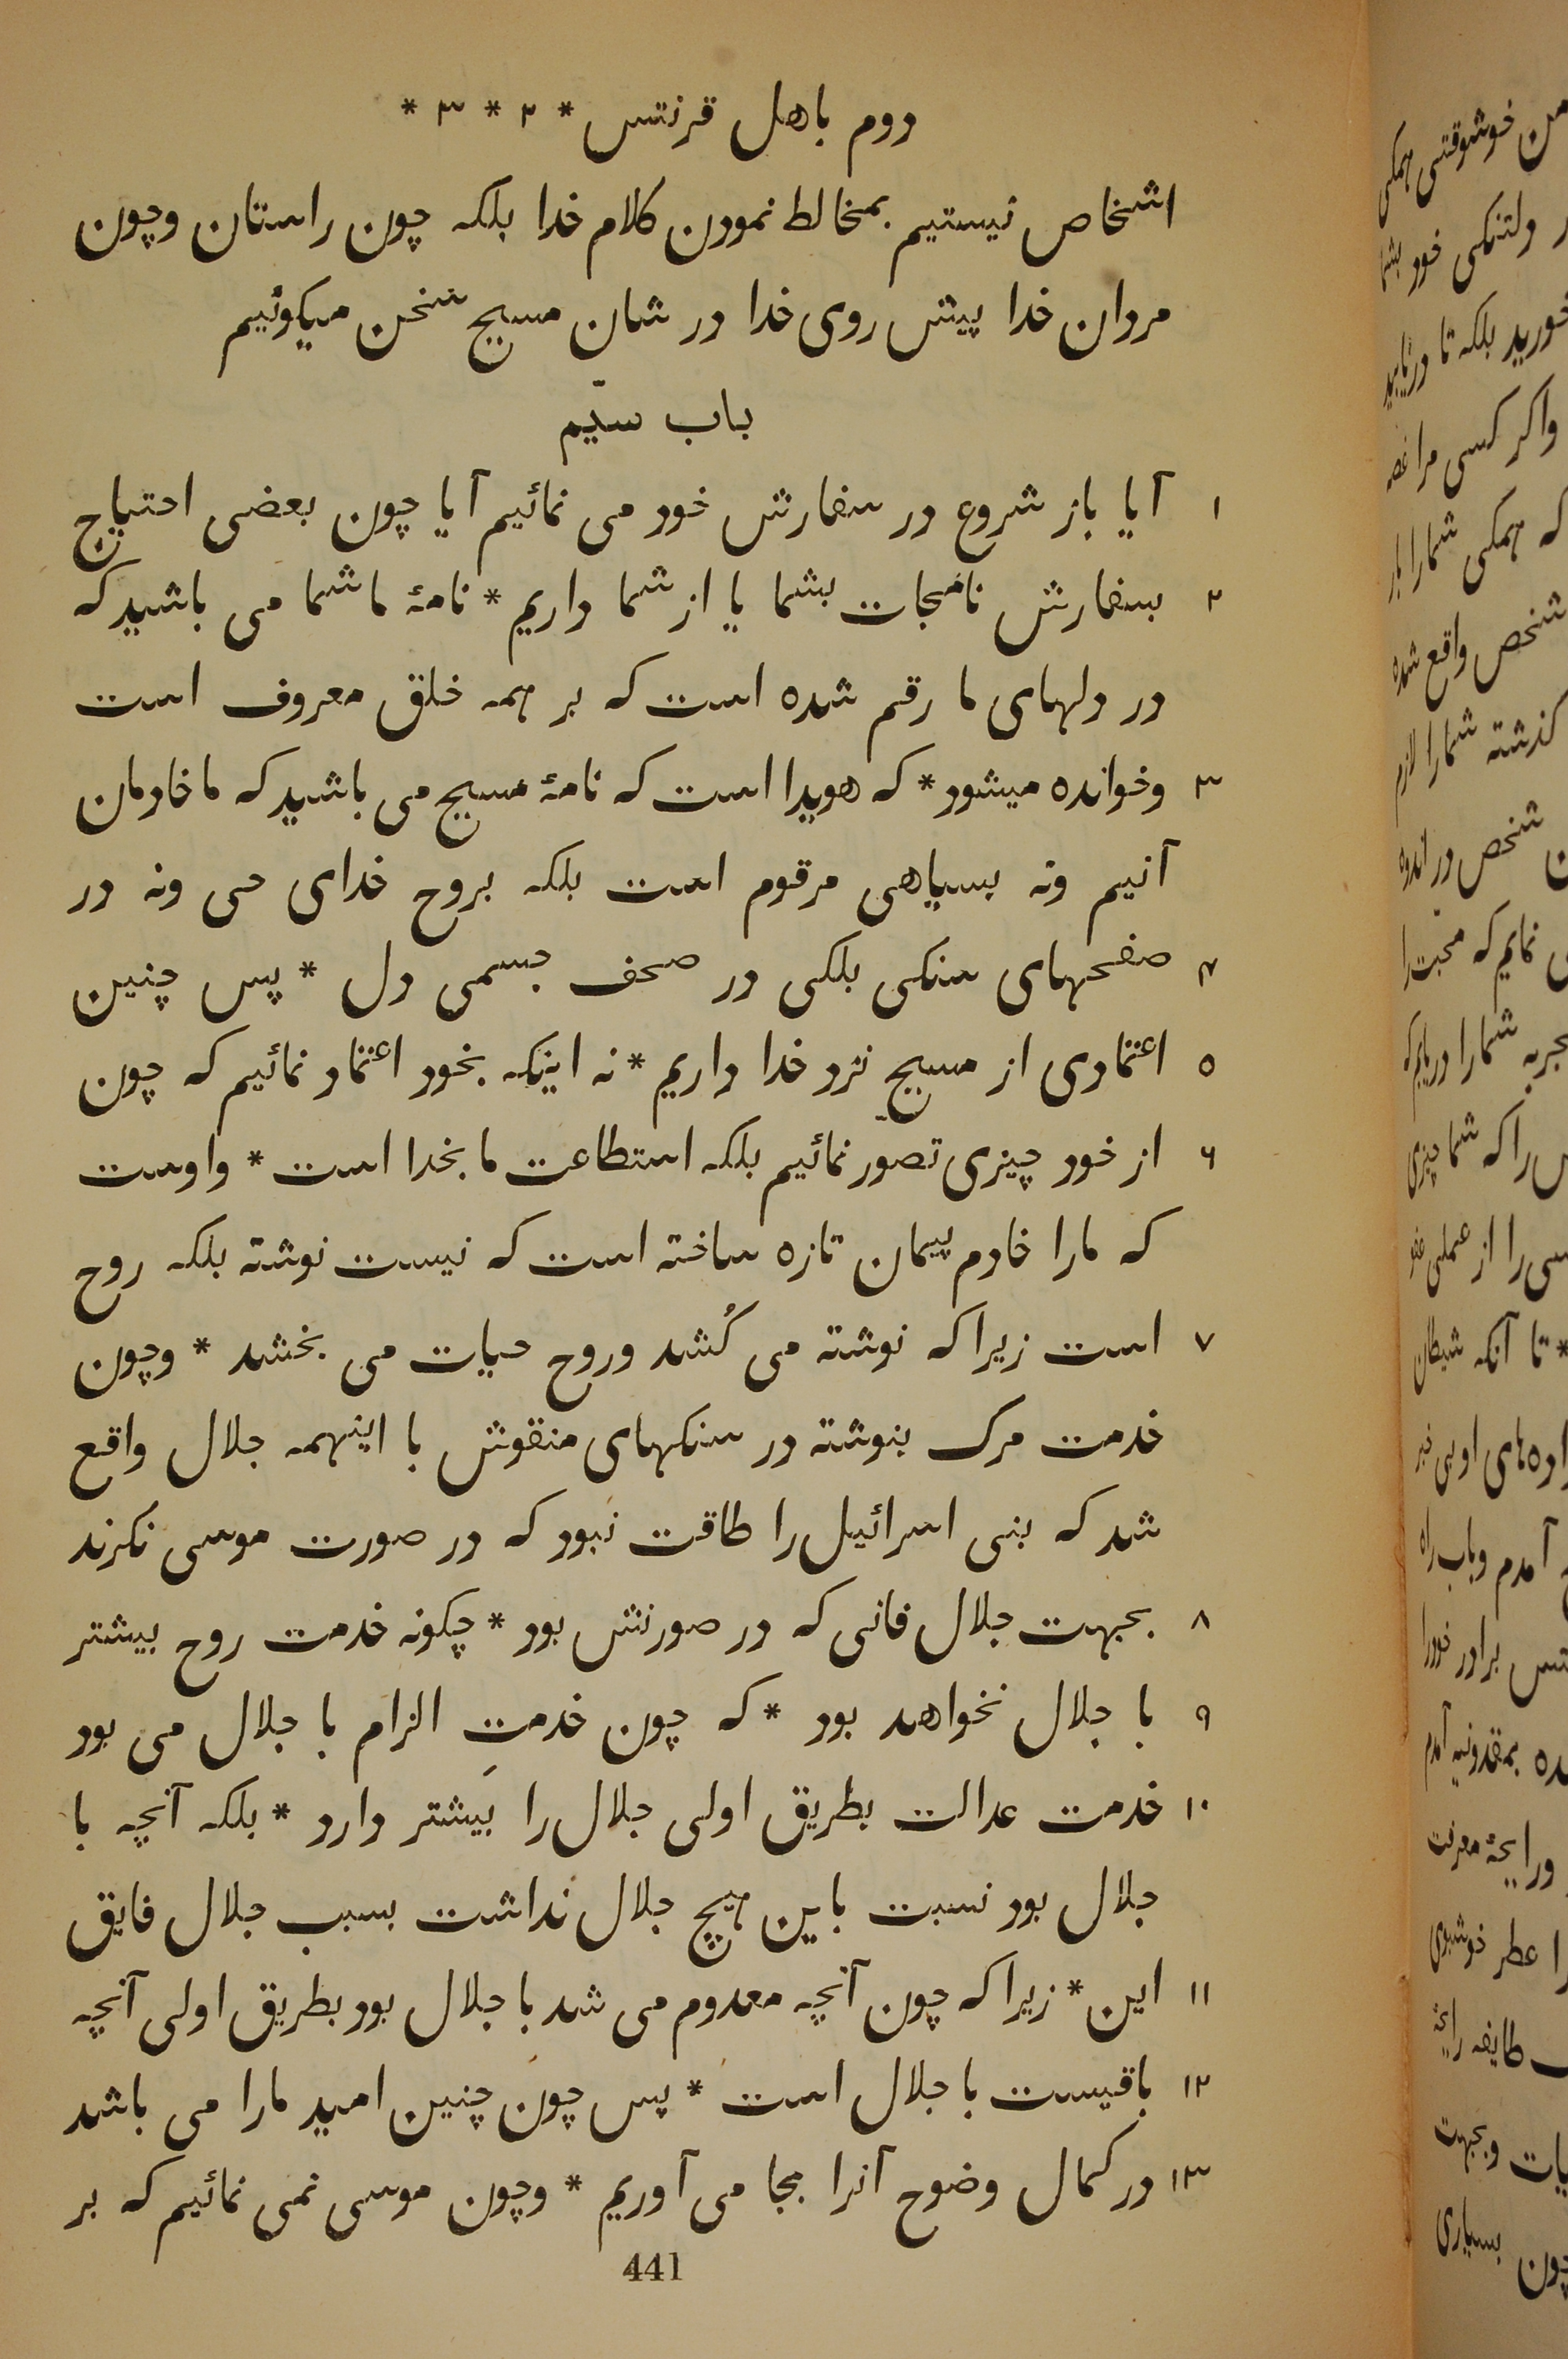 دوم باهل قرنتس * ۲ * ۳ *
اشخاص نیستیم بمخالط نمودن کلام خدا بلکه چون راستان وچون
مردان خدا پیش روی خدا در شان مسیح سخن میکوئیم
باب سیّم
۱ آیا باز شروع در سفارش خود می نمائیم آیا چون بعضی احتیاج
۲ بسفارش نامجات بشما یا از شما داریم * نامهٔ ما شما می باشید که
در دلهای ما رقم شده است که بر همه خلق معروف است
۳ وخوانده میشود * که هویدا است که نامهٔ مسیح می باشید که ما خادمان
آنیم ونه بسیاهی مرقوم است بلکه بروح خدای حی ونه در
۴ صفحهای سنکی بلکی در صحف جسمی دل * پس چنین
۵ اعتمادی از مسیح نزد خدا داریم * نه اینکه بخود اعتماد نمائیم که چون
۶ از خود چیزی تصوّر نمائیم بلکه استطاعت ما بخدا است * واوست
که مارا خادم پیمان تازه ساخته است که نیست نوشته بلکه روح
۷ است زیرا که نوشته می کُشد وروح حیات می بخشد * وچون
خدمت مرک بنوشته در سنکهای منقوش با اینهمه جلال واقع
شد که بنی اسرائیل را طاقت نبود که در صورت موسی نکرند
۸ بجهت جلال فانی که در صورتش بود * چکونه خدمت روح بیشتر
۹ با جلال نخواهد بود * که چون خدمتِ الزام با جلال می بود
۱۰ خدمت عدالت بطریق اولی جلال را بیشتر دارد * بلکه آنچه با
جلال بود نسبت باین هیچ جلال نداشت بسبب جلال فایق
۱۱ این * زیرا که چون آنچه معدوم می شد با جلال بود بطریق اولی آنچه
۱۲ باقیست با جلال است * پس چون چنین امید مارا می باشد
۱۳ در کمال وضوح آنرا بجا می آوریم * وچون موسی نمی نمائیم که بر
441